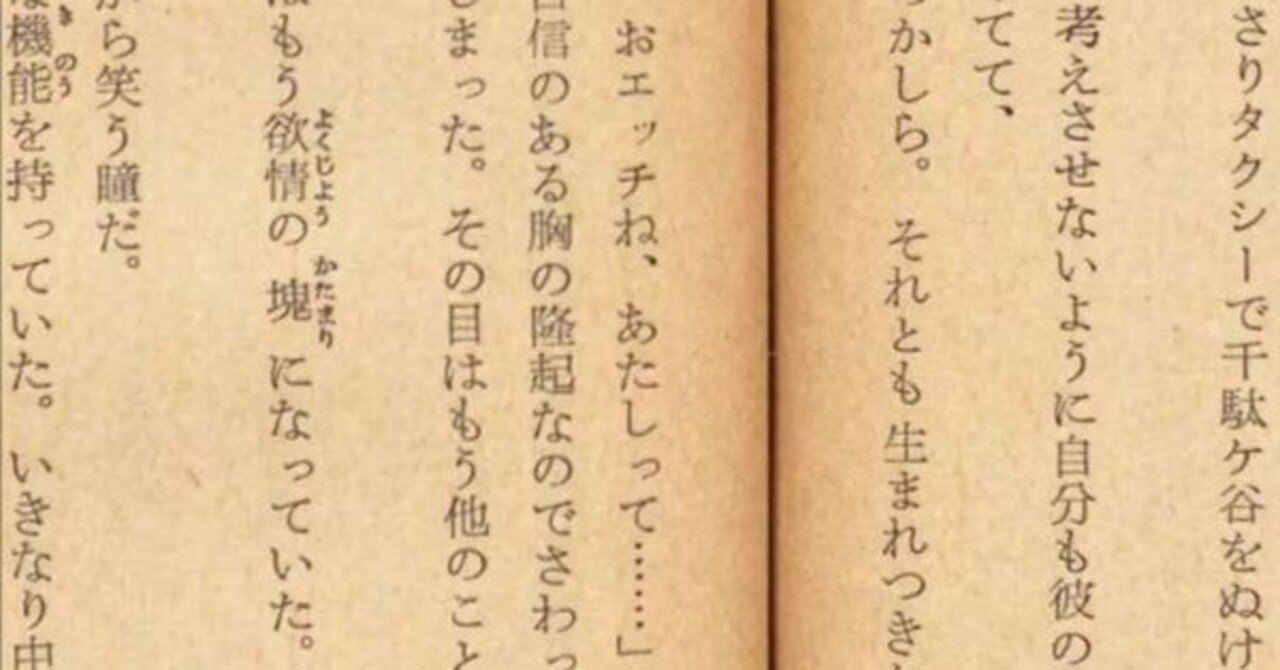 さりタクシーで千駄ケ谷をぬけ
考えさせないように自分も彼の
てて、
かしら。それとも生まれつき
おエッチね、あたしって……」
信のある胸の隆起なのでさわっ
しまった。その目はもう他のこと
もう欲情の塊になっていた。
よくじょう かたまり
がら笑う瞳だ。
な機能を持っていた。いきなり
きのう